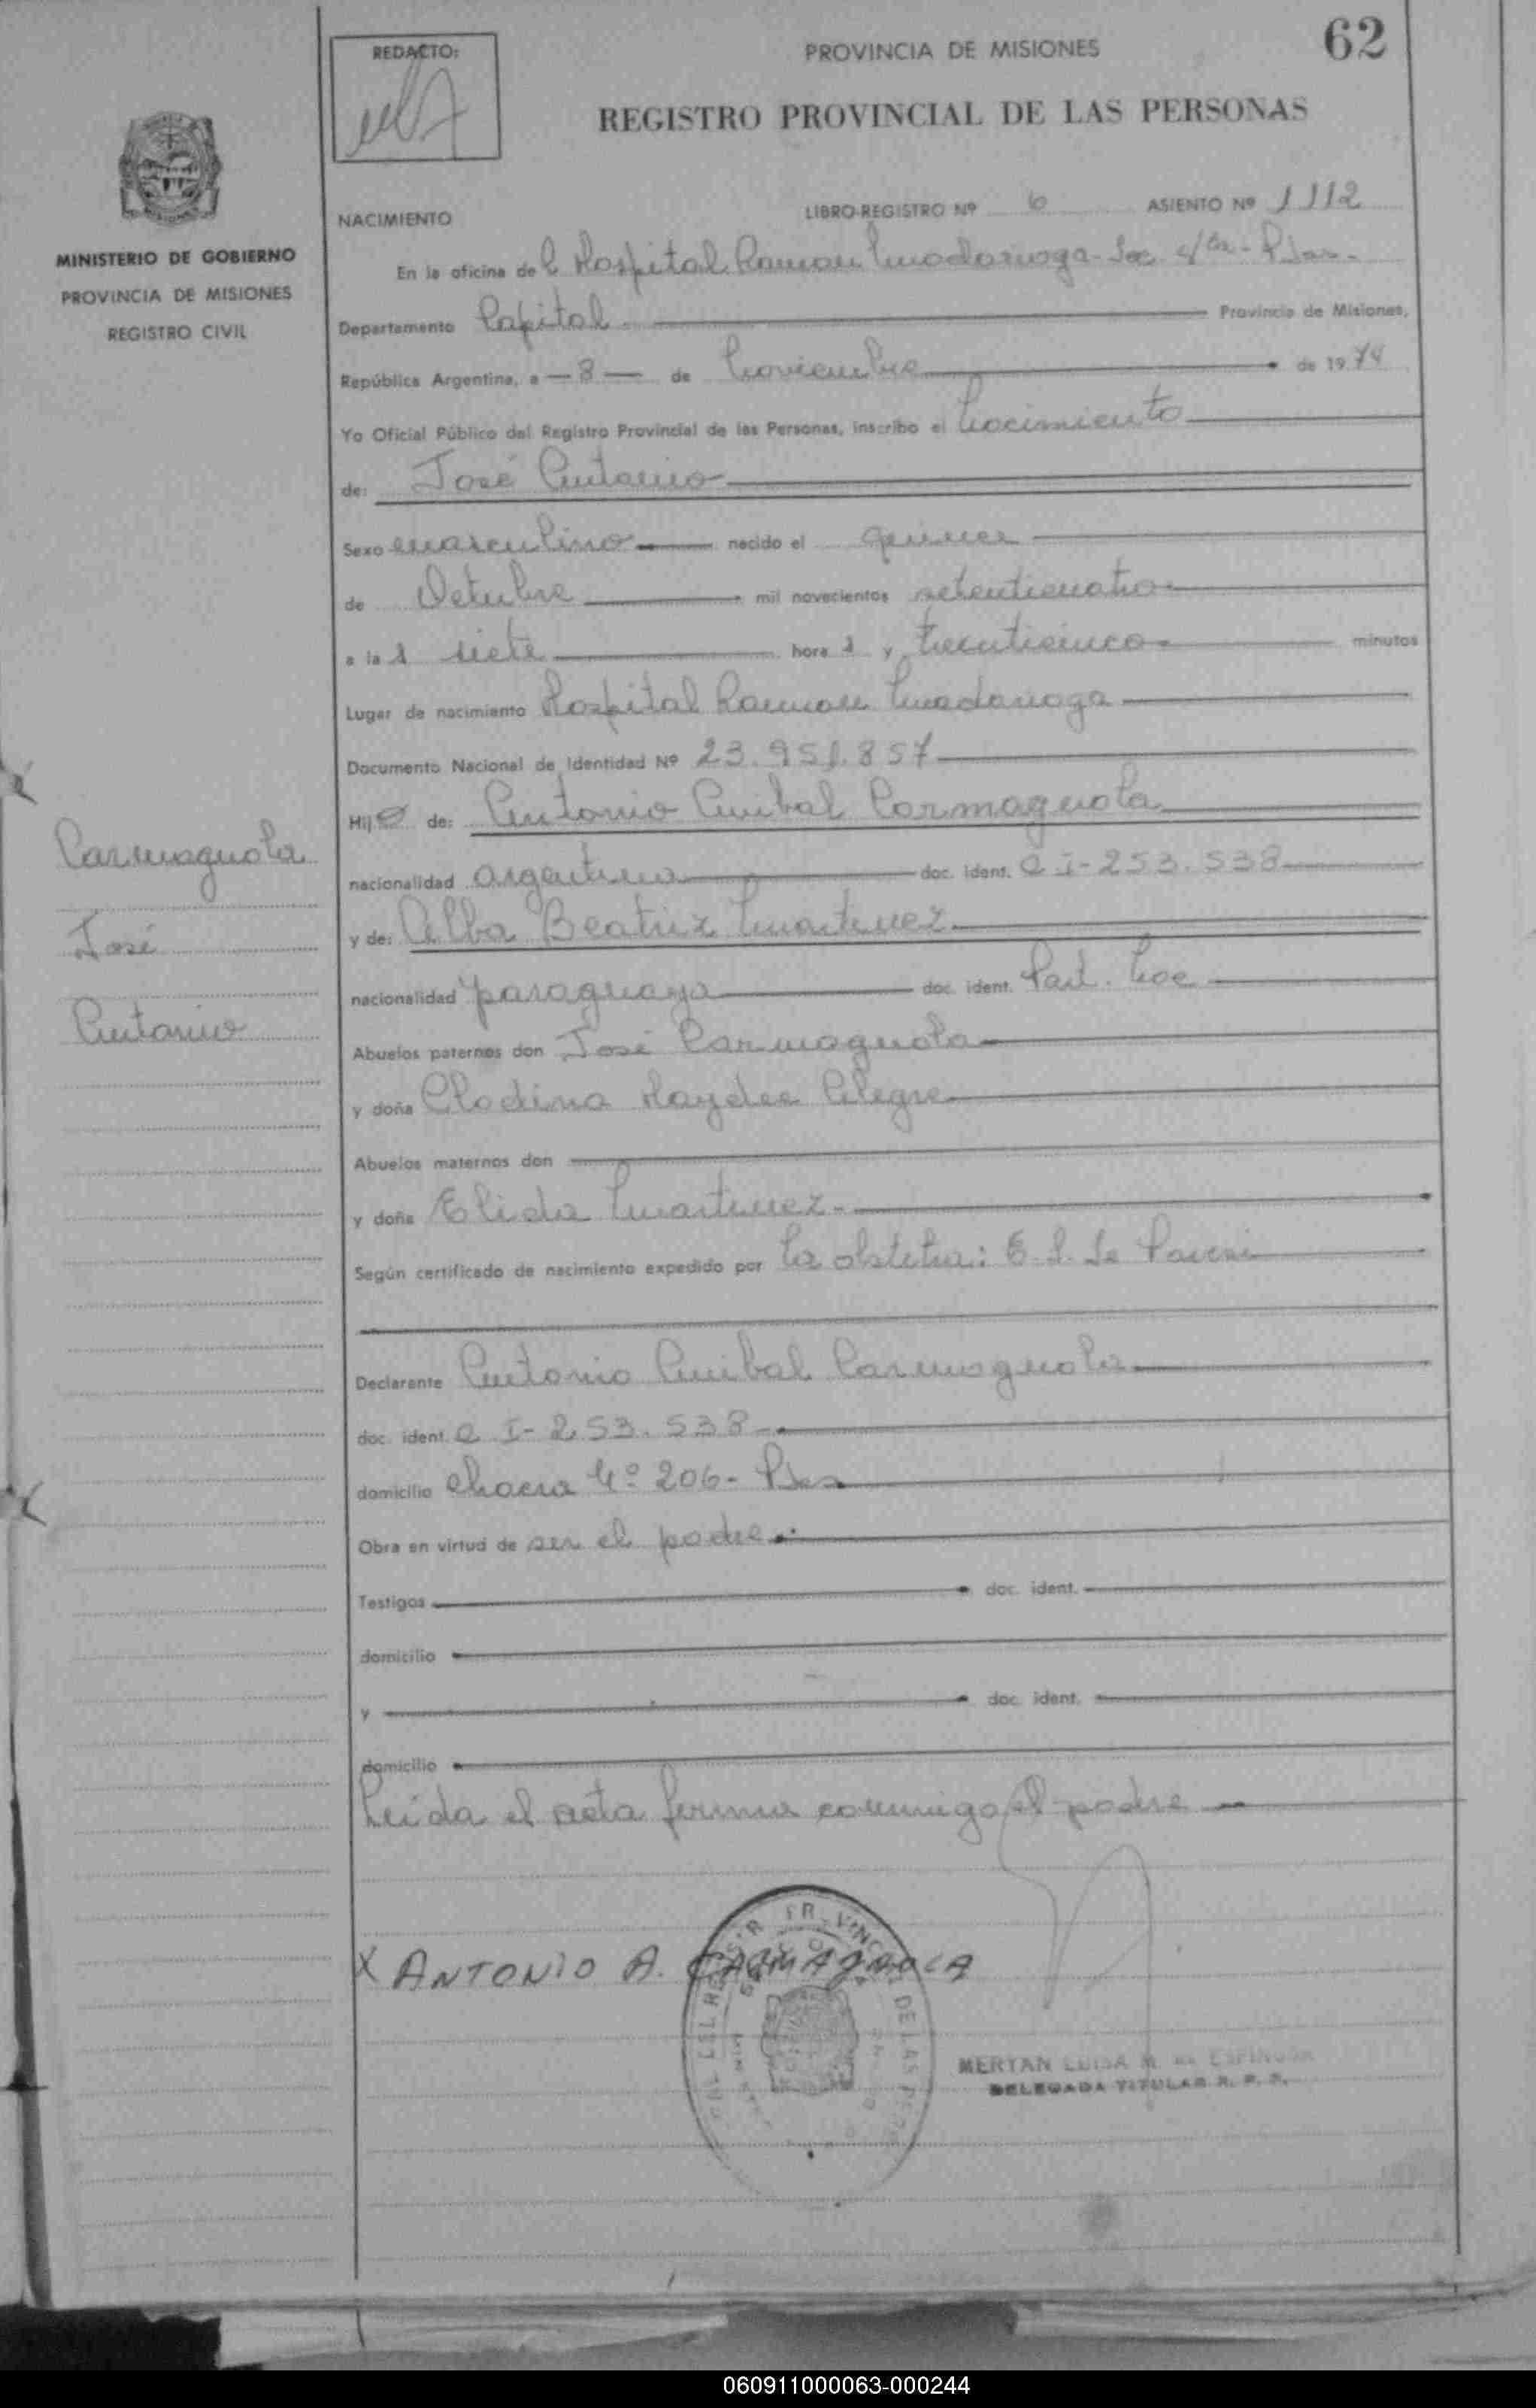 62
REDACTO:
PROVINCIA DE MISIONES
REGISTRO PROVINCIAL DE LAS PERSONAS
MINISTERIO DE GOBIERNO
PROVINCIA DE MISIONES
REGISTRO CIVIL
NACIMIENTO LIBRO-REGISTRO Nº 6 ASIENTO Nº 1112
En la oficina del Hospital Ramon Madariaga - Sec 4ta - Pdas.
Departamento Capital. Provincia de Misiones,
República Argentina, a - 8 - de Noviembre de 1974
Yo Oficial Público del Registro Provincial de las Personas, inscribo el Nacimiento
de: José Antonio
Sexo masculino nacido el quince
de Octubre mil novecientos setenticuatro
a las siete horas y treinticinco minutos
Lugar de nacimiento Hospital Ramon Madariaga
Documento Nacional de Identidad Nº 23.951.857
Hijo de: Antonio Anibal Carmagnola
nacionalidad argentina doc. ident. C I - 253.538
y de: Alba Beatriz Martinez
nacionalidad paraguaya doc. ident.
Abuelos paternos don José Carmagnola
y doña Clodina Haydee Alegre
Abuelos maternos don
y doña Elida Martinez
Según certificado de nacimiento expedido por la obstetra:
Declarante Antonio Anibal Carmagnola
doc. ident. C I - 253.538
domicilio chacra Nº 206 - Pdas
Obra en virtud de ser el padre
Testigos doc. ident.
domicilio
y doc. ident.
domicilio
Leida el acta firma conmigo el padre
Carmagnola
José
Antonio
X ANTONIO A. CARMAGNOLA
DE LAS
MERYAN LUISA M. de ESPINOSA
DELEGADA TITULAR R. P. P.
060911000063-000244